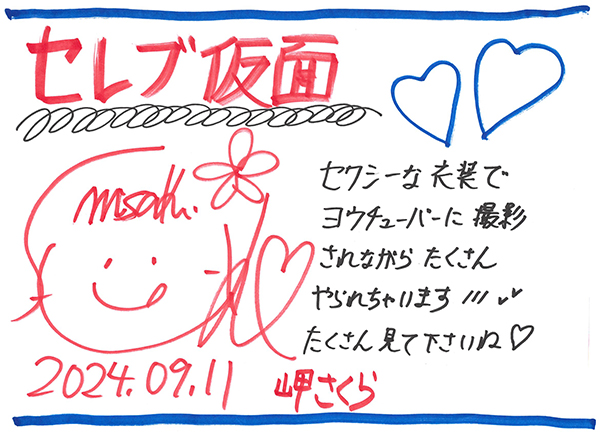 セレブ仮面
misaki.
セクシーな衣装で
ヨウチューバーに撮影
されながらたくさん
やられちゃいます!!!
たくさん見て下さいね♡
2024.09.11 岬さくら